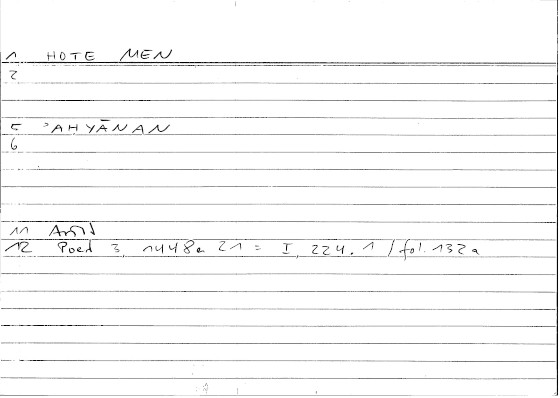 1 HOTE MEN
2
5 ʾAHYĀNAN
6
11 Arist
12 Poet 3, 1448a 21 = I, 224.1 / fol. 132a